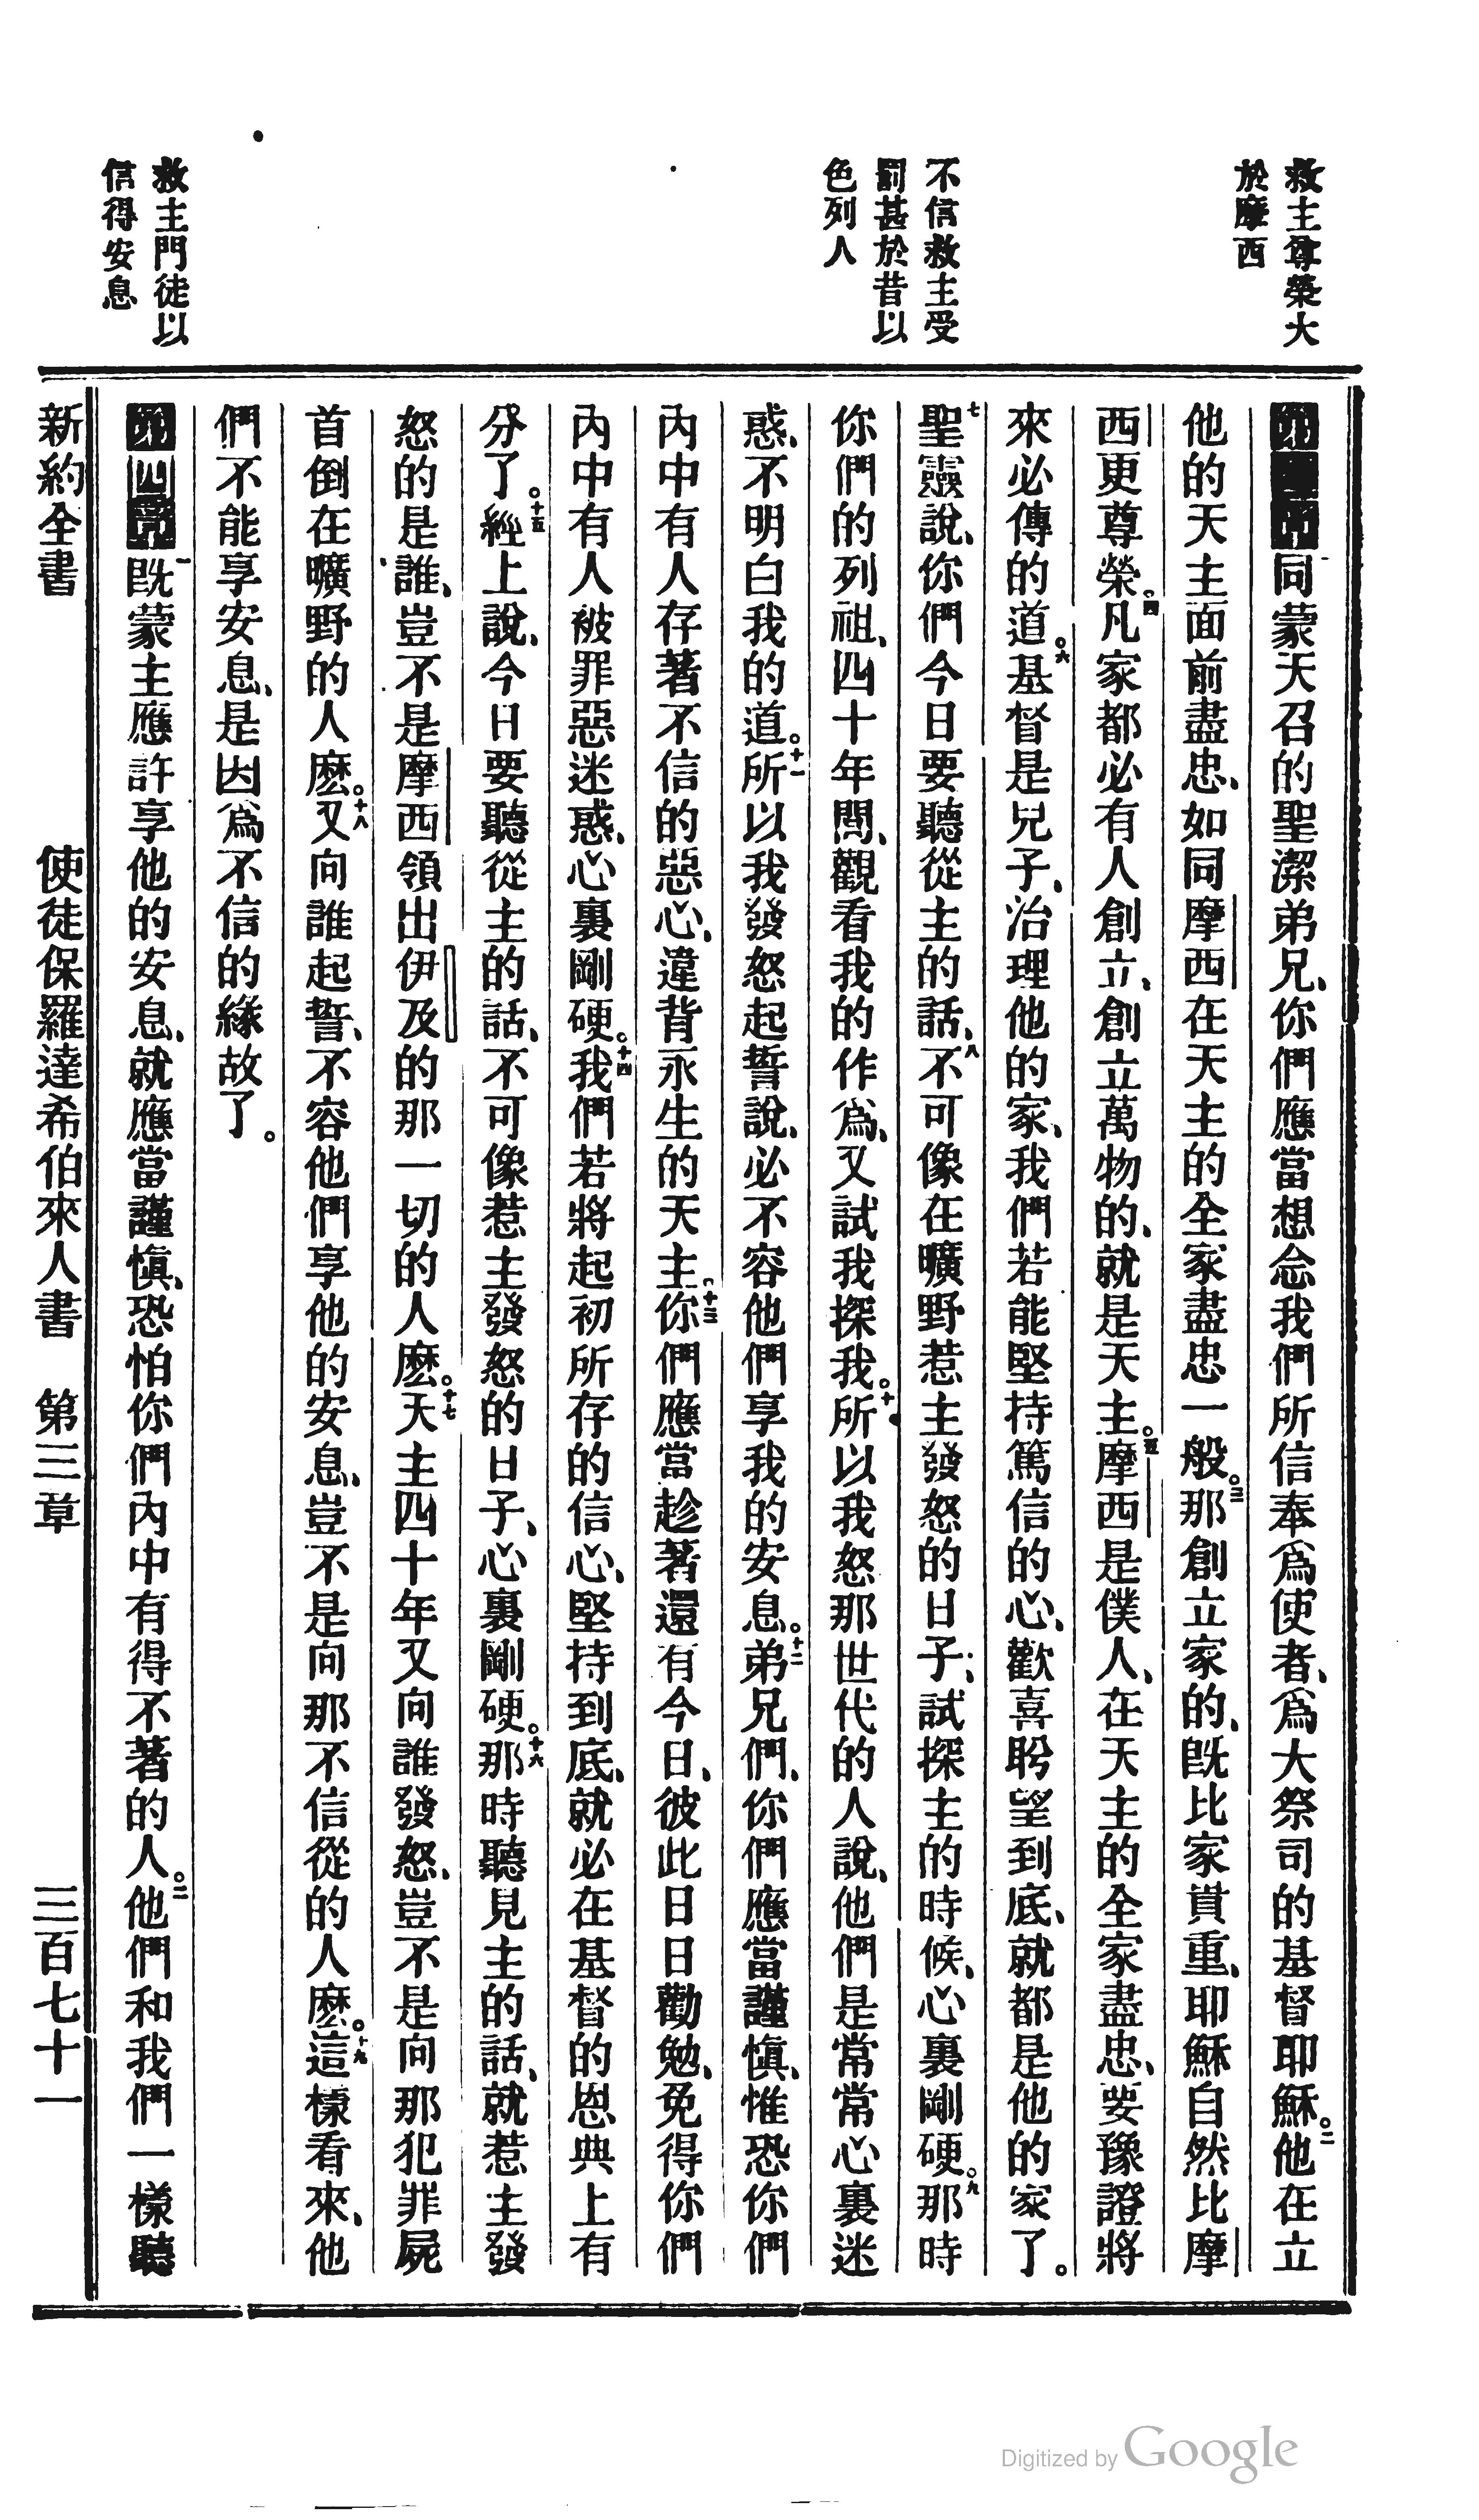 救主尊榮大
於摩西
不信救主受
罰甚於昔以
色列人
救主門徒以
信得安息
第三章一同蒙天召的聖潔弟兄、你們應當想念我們所信奉爲使者、爲大祭司的基督耶穌。二他在立
他的天主面前盡忠、如同摩西在天主的全家盡忠一般。三那創立家的、旣比家貴重、耶穌自然比摩
西更尊榮。四凡家都必有人創立、創立萬物的、就是天主。五摩西是僕人、在天主的全家盡忠、要豫證將
來必傳的道。六基督是兒子、治理他的家、我們若能堅持篤信的心、歡喜盼望到底、就都是他的家了。
七聖靈說、你們今日要聽從主的話、八不可像在曠野惹主發怒的日子、試探主的時候、心裏剛硬。九那時
你們的列祖、四十年間、觀看我的作爲、又試我探我。十所以我怒那世代的人說、他們是常常心裏迷
惑、不明白我的道。十一所以我發怒起誓說、必不容他們享我的安息。十二弟兄們、你們應當謹愼、惟恐你們
內中有人存著不信的惡心、違背永生的天主。十三你們應當趁著還有今日、彼此日日勸勉、免得你們
內中有人被罪惡迷惑、心裏剛硬。十四我們若將起初所存的信心、堅持到底、就必在基督的恩典上有
分了。十五經上說、今日要聽從主的話、不可像惹主發怒的日子、心裏剛硬。十六那時聽見主的話、就惹主發
怒的是誰、豈不是摩西領出伊及的那一切的人麽。十七天主四十年又向誰發怒、豈不是向那犯罪屍
首倒在曠野的人麽。十八又向誰起誓、不容他們享他的安息、豈不是向那不信從的人麽。十九這樣看來、他
們不能享安息、是因爲不信的緣故了。
第四章一旣蒙主應許享他的安息、就應當謹愼、恐怕你們內中有得不著的人。二他們和我們一樣聽
新約全書 使徒保羅達希伯來人書 第三章 三百七十一
Digitized by Google